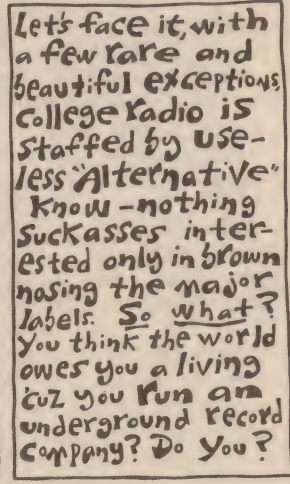 Let's face it, with
a few rare and
beautiful exceptions,
College radio is
staffed by use-
less "Alternative"
know-nothing
suckasses inter-
ested only in brown
nosing the major
labels. So what?
You think the world
owes you a living
'cuz you run an
underground record
company? Do You?